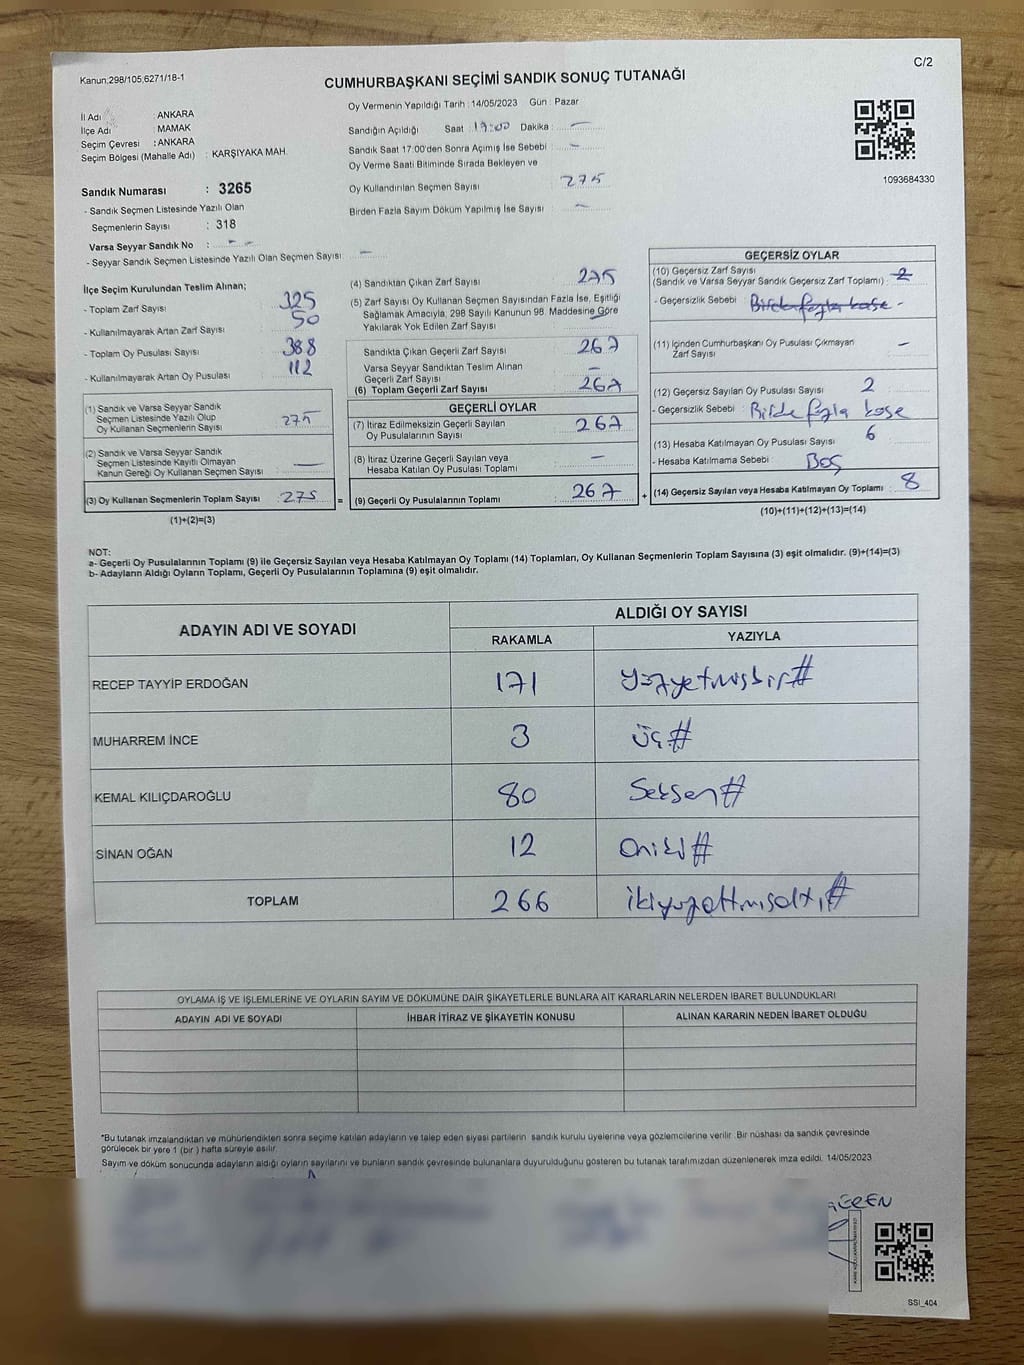 Kanun.298/105,6271/18-1
C/2
CUMHURBAŞKANI SEÇİMİ SANDIK SONUÇ TUTANAĞI
İl Adı : ANKARA
İlçe Adı : MAMAK
Seçim Çevresi : ANKARA
Seçim Bölgesi (Mahalle Adı) : KARŞIYAKA MAH.
Sandık Numarası : 3265
- Sandık Seçmen Listesinde Yazılı Olan
Seçmenlerin Sayısı : 318
Varsa Seyyar Sandık No : - -
- Seyyar Sandık Seçmen Listesinde Yazılı Olan Seçmen Sayısı: -
Oy Vermenin Yapıldığı Tarih : 14/05/2023 Gün : Pazar
Sandığın Açıldığı Saat 17:00 Dakika : -
Sandık Saat 17:00'den Sonra Açımış İse Sebebi : -
Oy Verme Saati Bitiminde Sırada Bekleyen ve
Oy Kullandırılan Seçmen Sayısı : 275
Birden Fazla Sayım Döküm Yapılmış İse Sayısı : -
1093684330
İlçe Seçim Kurulundan Teslim Alınan;
- Toplam Zarf Sayısı : 325
- Kullanılmayarak Artan Zarf Sayısı : 50
- Toplam Oy Pusulası Sayısı : 388
- Kullanılmayarak Artan Oy Pusulası : 112
(1) Sandık ve Varsa Seyyar Sandık
Seçmen Listesinde Yazılı Olup
Oy Kullanan Seçmenlerin Sayısı : 275
(2) Sandık ve Varsa Seyyar Sandık
Seçmen Listesinde Kayıtlı Olmayan
Kanun Gereği Oy Kullanan Seçmen Sayısı : -
(3) Oy Kullanan Seçmenlerin Toplam Sayısı : 275 =
(1)+(2)=(3)
(4) Sandıktan Çıkan Zarf Sayısı : 275
(5) Zarf Sayısı Oy Kullanan Seçmen Sayısından Fazla İse, Eşitliği
Sağlamak Amacıyla, 298 Sayılı Kanunun 98. Maddesine Göre
Yakılarak Yok Edilen Zarf Sayısı : -
Sandıkta Çıkan Geçerli Zarf Sayısı : 267
Varsa Seyyar Sandıktan Teslim Alınan
Geçerli Zarf Sayısı : -
(6) Toplam Geçerli Zarf Sayısı : 267
GEÇERLİ OYLAR
(7) İtiraz Edilmeksizin Geçerli Sayılan
Oy Pusulalarının Sayısı : 267
(8) İtiraz Üzerine Geçerli Sayılan veya
Hesaba Katılan Oy Pusulası Toplamı : -
(9) Geçerli Oy Pusulalarının Toplamı : 267 +
GEÇERSİZ OYLAR
(10) Geçersiz Zarf Sayısı
(Sandık ve Varsa Seyyar Sandık Geçersiz Zarf Toplamı) : 2
- Geçersizlik Sebebi : Birde fazla kase -
(11) İçinden Cumhurbaşkanı Oy Pusulası Çıkmayan
Zarf Sayısı : -
(12) Geçersiz Sayılan Oy Pusulası Sayısı : 2
- Geçersizlik Sebebi : Birde fazla kase
(13) Hesaba Katılmayan Oy Pusulası Sayısı : 6
- Hesaba Katılmama Sebebi : Boş
(14) Geçersiz Sayılan veya Hesaba Katılmayan Oy Toplamı : 8
(10)+(11)+(12)+(13)=(14)
NOT:
a- Geçerli Oy Pusulalarının Toplamı (9) ile Geçersiz Sayılan veya Hesaba Katılmayan Oy Toplamı (14) Toplamları, Oy Kullanan Seçmenlerin Toplam Sayısına (3) eşit olmalıdır. (9)+(14)=(3)
b- Adayların Aldığı Oyların Toplamı, Geçerli Oy Pusulalarının Toplamına (9) eşit olmalıdır.
ADAYIN ADI VE SOYADI
ALDIĞI OY SAYISI
RAKAMLA YAZIYLA
RECEP TAYYİP ERDOĞAN 171 yüzyetmişbir#
MUHARREM İNCE 3 üç#
KEMAL KILIÇDAROĞLU 80 Seksen#
SİNAN OĞAN 12 Oniki#
TOPLAM 266 ikiyüzaltmışaltı#
OYLAMA İŞ VE İŞLEMLERİNE VE OYLARIN SAYIM VE DÖKÜMÜNE DAİR ŞİKAYETLERLE BUNLARA AİT KARARLARIN NELERDEN İBARET BULUNDUKLARI
ADAYIN ADI VE SOYADI İHBAR İTİRAZ VE ŞİKAYETİN KONUSU ALINAN KARARIN NEDEN İBARET OLDUĞU
*Bu tutanak imzalandıktan ve mühürlendikten sonra seçime katılan adayların ve talep eden siyasi partilerin sandık kurulu üyelerine veya gözlemcilerine verilir. Bir nüshası da sandık çevresinde
görülecek bir yere 1 (bir ) hafta süreyle asılır.
Sayım ve döküm sonucunda adayların aldığı oyların sayılarını ve bunların sandık çevresinde bulunanlara duyurulduğunu gösteren bu tutanak tarafımızdan düzenlenerek imza edildi. 14/05/2023
SSİ_404